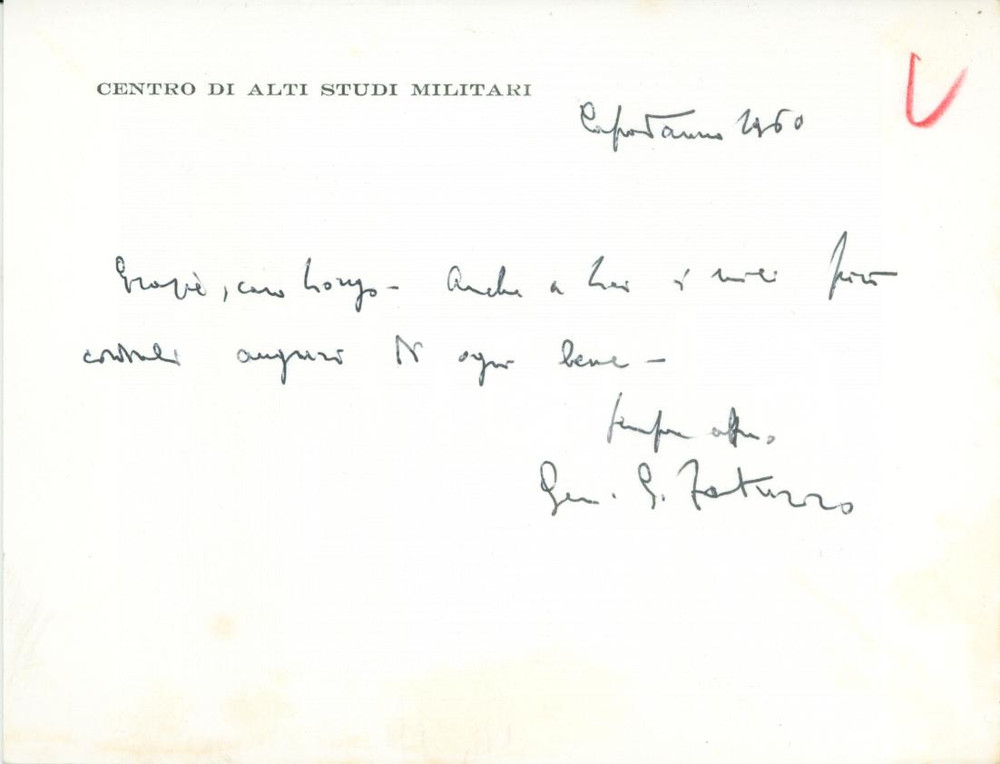 CENTRO DI ALTI STUDI MILITARI
Capodanno 1960
Grazie, caro Longo - Anche a Lei i miei più
cordiali auguri di ogni bene -
sempre aff.
Gen. G.